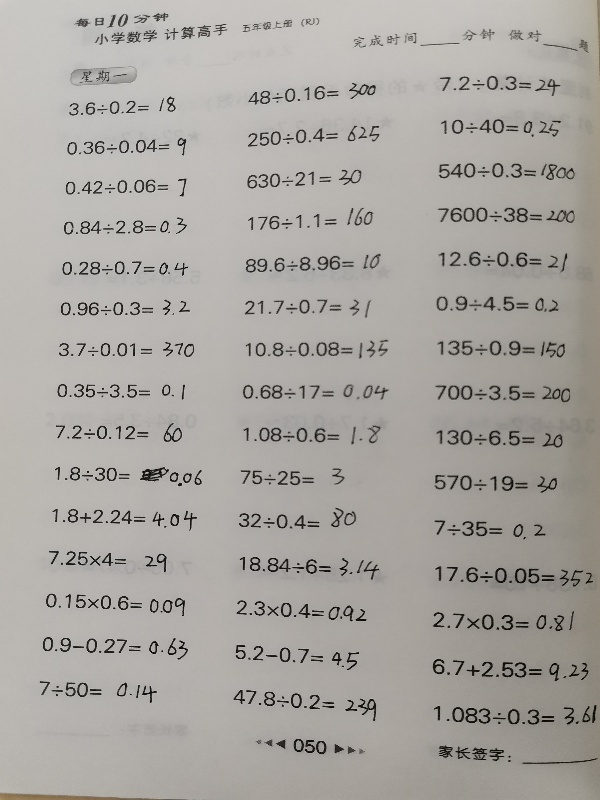 每日10分钟
小学数学 计算高手 五年级上册 (RJ)
完成时间____分钟 做对____题
星期一
3.6÷0.2= 18
0.36÷0.04= 9
0.42÷0.06= 7
0.84÷2.8= 0.3
0.28÷0.7= 0.4
0.96÷0.3= 3.2
3.7÷0.01= 370
0.35÷3.5= 0.1
7.2÷0.12= 60
1.8÷30= 0.06
1.8+2.24= 4.04
7.25×4= 29
0.15×0.6= 0.09
0.9−0.27= 0.63
7÷50= 0.14
48÷0.16= 300
250÷0.4= 625
630÷21= 30
176÷1.1= 160
89.6÷8.96= 10
21.7÷0.7= 31
10.8÷0.08= 135
0.68÷17= 0.04
1.08÷0.6= 1.8
75÷25= 3
32÷0.4= 80
18.84÷6= 3.14
2.3×0.4= 0.92
5.2−0.7= 4.5
47.8÷0.2= 239
7.2÷0.3= 24
10÷40= 0.25
540÷0.3= 1800
7600÷38= 200
12.6÷0.6= 21
0.9÷4.5= 0.2
135÷0.9= 150
700÷3.5= 200
130÷6.5= 20
570÷19= 30
7÷35= 0.2
17.6÷0.05= 352
2.7×0.3= 0.81
6.7+2.53= 9.23
1.083÷0.3= 3.61
050
家长签字：________